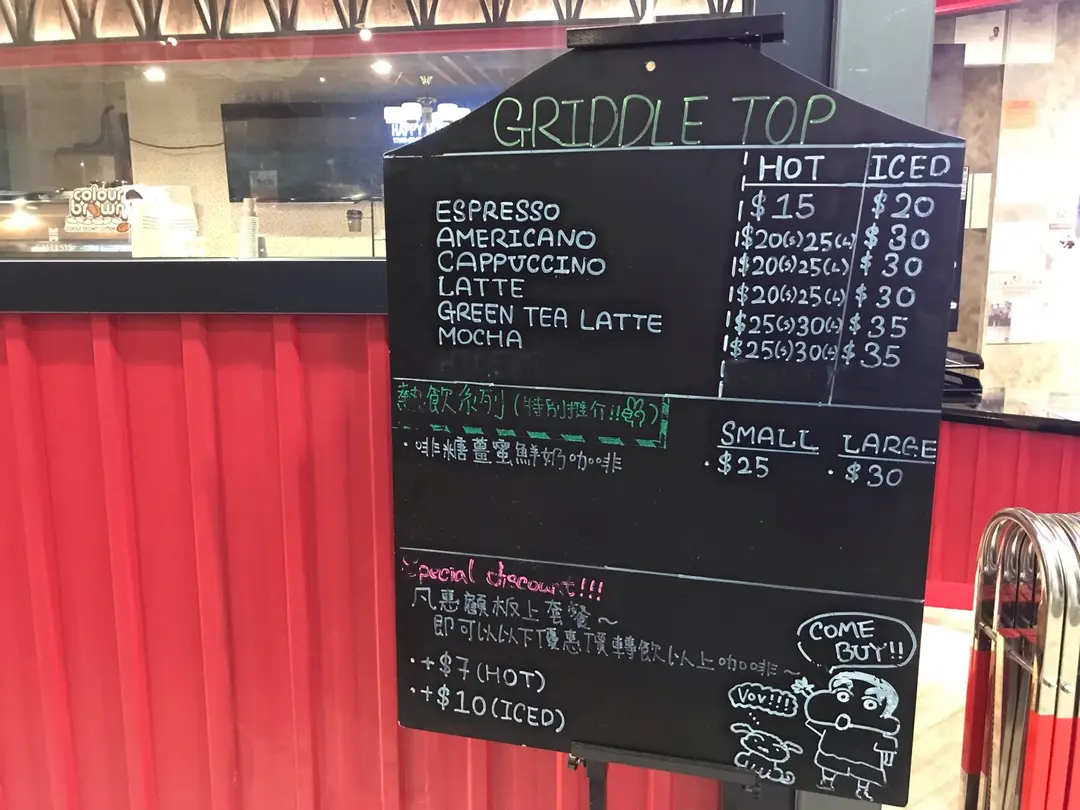 GRIDDLE TOP
HOT ICED
ESPRESSO $15 $20
AMERICANO $20(S)25(L) $30
CAPPUCCINO $20(S)25(L) $30
LATTE $20(S)25(L) $30
GREEN TEA LATTE $25(S)30(L) $35
MOCHA $25(S)30(L) $35
熱飲系列(特別推介!!)
SMALL LARGE
·啡糖薑蜜鮮奶咖啡 ·$25 ·$30
Special discount!!!
凡惠顧板上套餐~
即可以以下優惠價轉飲以上咖啡~
·+$7(HOT)
·+$10(ICED)
COME
BUY!!
Vov!!!
colour
brown
HAPPY